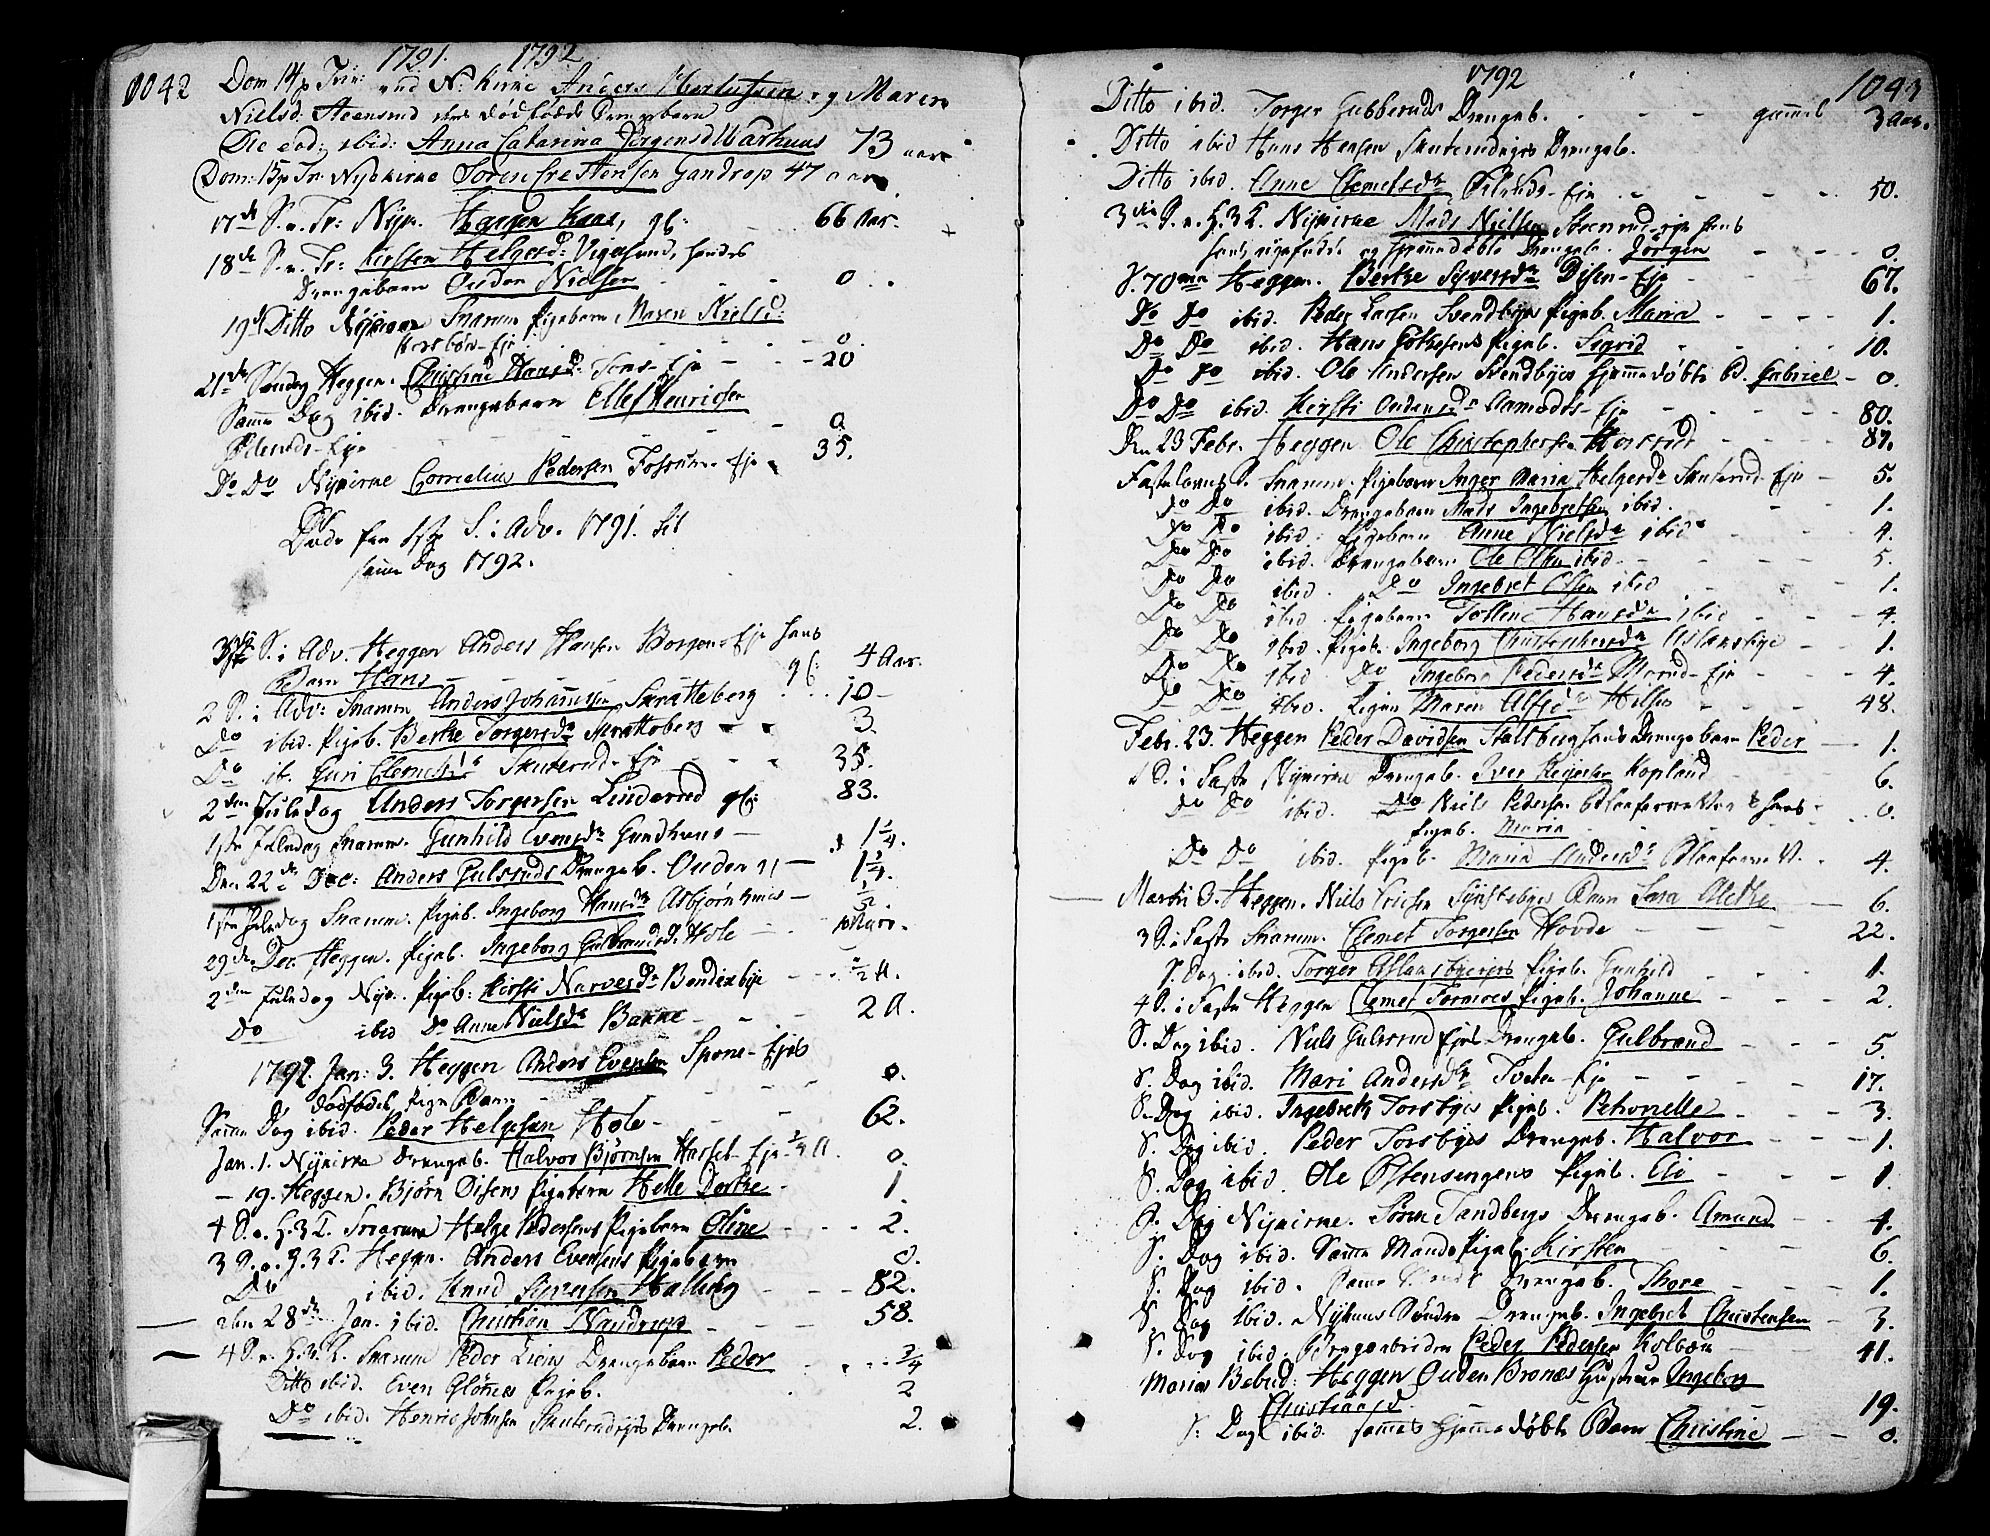 1042 1791. 1792
Dom 14 p Trin: ved N: Kirke Anders og Maren
Nielsd: Steensrud dødfødde Drengebarn
Die eod: ibid: Anna Catarina Jørgensd Aarhuus 73 aar
Dom: 15 p Tr: Nykirke Søren Crestensen Gandrop 47 aar
17de S. n. Tr: Nyk. Haagen Haas, gl: 66 Aar.
18de S. n. Tr: Kirsten Helgesd: Vigersund, hendes
Drengebarn Ouden Nielsen 0
19de Ditto Nykirke Snarum Pigebarn Maren Nielsd:
Eje 0
21de Søndag Heggen. Christine Hansd: Eje 20
Samme Dag ibid. Drengebarn Ellef Henrichsen
Eje 0.
Do Do Nykirke Cornelius Pedersen Fossum Eje 35.
Døde fra 1ste S. i Adv. 1791. til
samme Dag 1792.
S. i Adv. Heggen Anders Hansen Borgen Eje hans
Barn Hans gl: 4 Aar.
2 S. i Adv: Snarum Anders Johannesen Skratteberg 10
Do ibid. Pigeb. Berthe Torgersd Skratteberg 3.
Do ib. Guri Clemetsd Skuterud Eje 35.
2den Juledag Anders Torgersen Linderud gl: 83.
1ste Juledag Snarum. Gunhild Evensdr Gundhuus 1 1/4.
Den 22de Dec: Anders Gulsruds Drengeb. Ouden 1 1/4.
1ste Juledag Snarum. Pigeb. Ingeborg Hansdr Asbjørnhuus 1/2.
29de Dec. Heggen. Pigeb. Ingeborg Gulbrandsd. Hole
2den Juledag Nyk. Pigeb: Kirsti Narvesdr Bendixbye 1/2 A.
Do ibid Do Anne Nielsdr Banne 2 A.
1792. Jan: 3. Heggen Anders Evensen Spone Ejes
dødfødet Pige Barn 0.
Samme Dag ibid. Peder Helgesen Hole 62.
Jan. 1. Nykirke Drengeb. Halvor Bjørnsen Hasset Eje 3/4 A. 0.
19. Heggen. Bjørn Disens Pigebarn Helle Dorthe 1.
4 S. e. H. 3 K. Snarum Helge Pedersens Pigebarn Oline 2.
3 S. e. H. 3 K. Heggn. Anders Evensens Pigebarn 0.
Do ibid. Knud Syversen Halling 82.
den 28de Jan. ibid. Christian Naudrup 58.
4 S. e. H. 3 K. Snarum Peder Liens Drengebarn Peder 3/4
Ditto ibid. Even Glønnes Pigeb. 2
Do ibid. Henric Johnsen Skuterudejes Drengeb. 2.
1792 1043
Ditto ibid. Torger Gubberuds Drengeb. gammel 3 Aar.
Ditto ibid Hans Hansen Skuterudejes Drengeb.
Ditto ibid. Anne Clemetsdr Eje 50.
3die S. n. H. 3 K. Nykirke Mads Nielsen Steensrud Eje hans
hjemmedøbte Drengeb. Jørgen 0.
S. 70ma Heggen. Berthe Syversdr Disen Eje 67.
Do Do ibid. Peder Larsen Svendbyes Pigeb. Maria 1.
Do Do ibid. Hans Pigeb. Sigrid 10.
Do Do ibid. Ole Andersen Svendbyes hjemmedøbte B. Gabriel 0.
Do Do ibid. Kirsti Oudensdr Aamodts Eje 80.
Den 23 Febr. Heggen Ole Christophersen 87.
Fastelavns S. Snarum. Pigebarn Inger Maria Helgesdr Skuterud Eje 5.
Do Do ibid. Drengebarn Mads Ingebretsen ibid. 1.
Do Do ibid. Pigebarn Anne Nielsdr ibid 4.
Do Do ibid. Drengebarn Ole Olsen ibid 5.
Do Do ibid. Do Ingebret Olsen ibid 1.
Do Do ibid Pigebarn Hansdr ibid 4.
Do Do ibid. Pigeb. Ingeborg Christophersdr Aslansbye 1.
Do Do ibid Do Ingebor Pedersdr Morud Eje 4.
Do Do ibid. Pigen Maren Alfsdr 48.
Febr. 23. Heggen Peder Davidsen Stalsberg hans Drengebarn Peder 1.
1 S. i Faste Nykirke Drengeb. Iver Kopland 6.
Do Do ibid Do Niels Pedersen Blaafarveværket hans
Pigeb. Maria 0.
Do Do ibid. Pigeb. Maria Andersdr Blaafarve V. 4.
Martii 3. Heggen. Niels Ericsen Barn Sara Alethe 6.
3 S. i Faste Snarum. Clemet Torgersen Hovde 22.
S. Dag ibid. Torger Aslansbyeejes Pigeb. Gunhild 1.
4 S. i Faste Heggen Clemet Pigeb. Johanne 2.
S. Dag ibid. Niels Gulsrud Ejes Drengeb. Gulbrand 5.
S. Dag ibid. Mari Andersdr Tveten Eje 17.
S. Dag ibid. Ingebreth Torsbyes Pigeb. Petronelle 3.
S. Dag ibid. Peder Torsbyes Drengeb. Halvor 1.
S. Dag ibid. Ole Østensengens Pigeb. 1
S. Dag Nykirke. Søren Sandbergs Drengeb. Amund 4.
S. Dag ibid. Samme Mands Pigeb. Kirsten 6.
S. Dag ibid. samme Mands Drengeb. Thore 1.
S. Dag ibid. Nyhuus Søndre Drengeb. Ingebret Christensen 3.
S. Dag ibid. Peder Pedersen Kolbæn 41.
Mariæ Bebud: Heggen Ouden Bronæs Hustrue Ingeborg
Christiansd. 19.
S. Dag ibid. sammes hjemmedøbte Barn Christine 0.